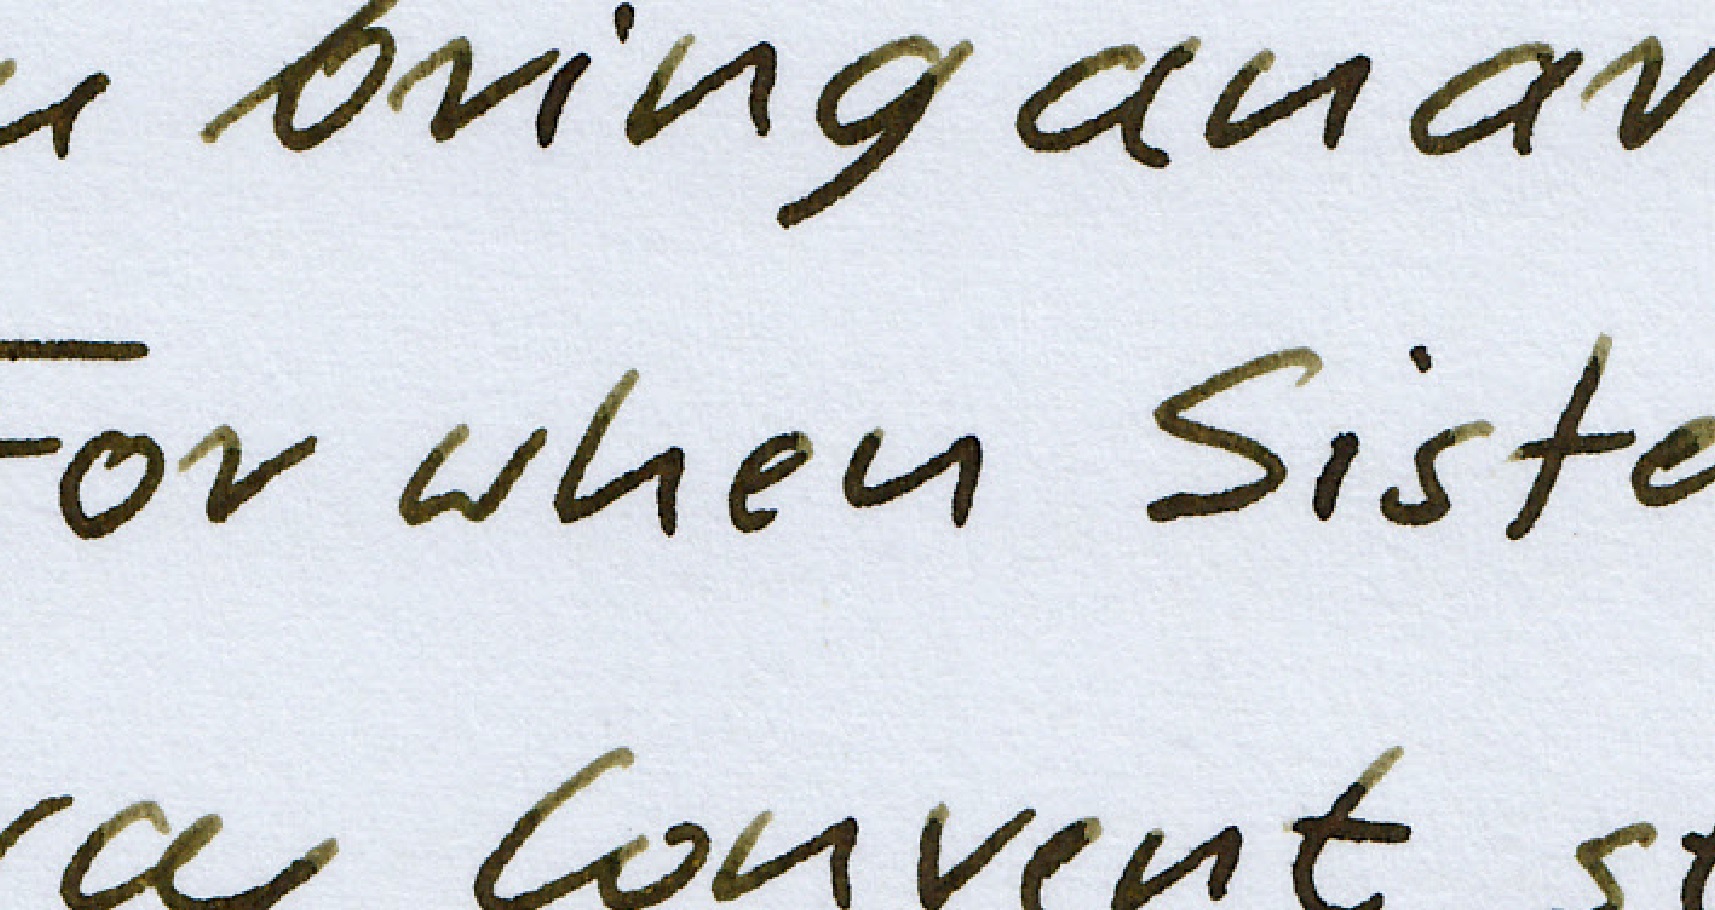 bring an ar
For when Siste
a Convent st